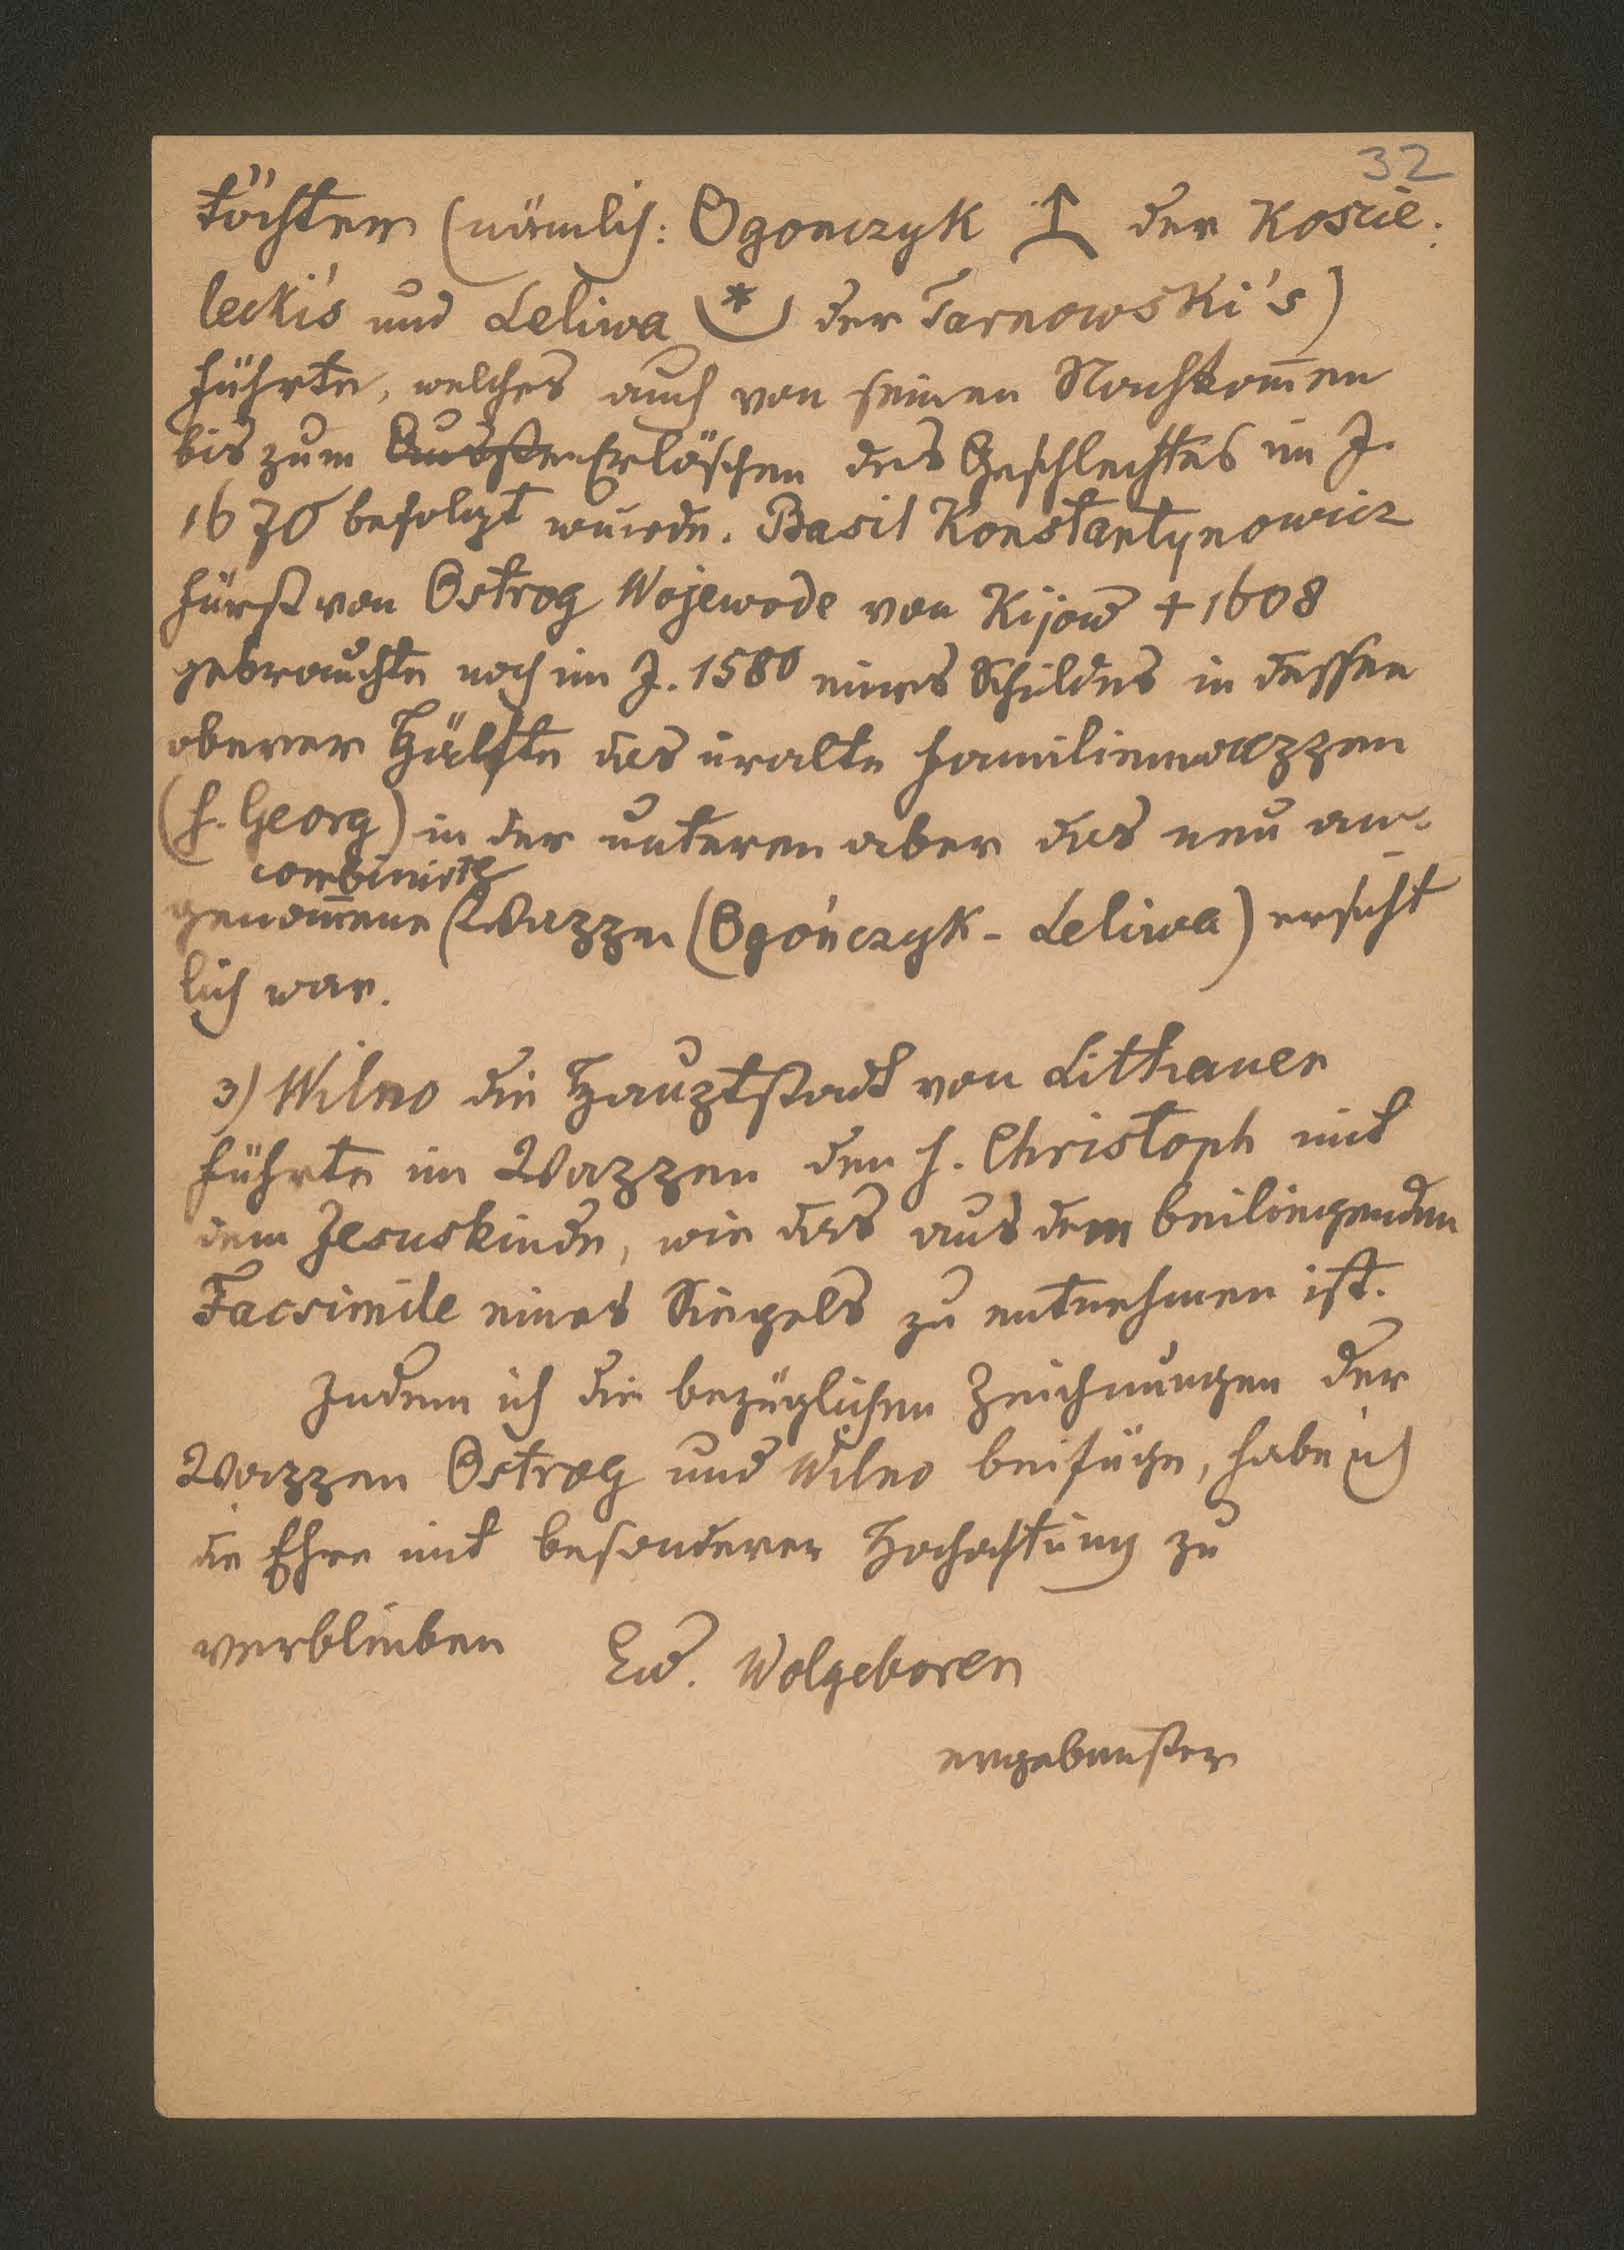 32
töchter (nämlich: Ogonczyk der Koscie-
lecki's und Leliwa der Tarnowski's)
führte, welches auch von seinen Nachkom̅en
bis zum Ausster Erlöschen des Geschlechtes im J.
1670 befolgt wurde. Basil Konstantynowicz
Fürst von Ostrog Wojewode von Kijow + 1608
gebrauchte noch im J. 1580 eines Schildes in dessen
oberer Hälfte das uralte Familienwappen
(h. Georg) in der unteren aber das neu an-
combinirte
genom̅ene (Wappen (Ogończyk - Leliwa) ersicht
lich war.
3) Wilno die Hauptstadt von Lithauen
führte im Wappen den h. Christoph mit
dem Jesuskinde, wie das aus dem beiliegenden
Facsimile eines Siegels zu entnehmen ist.
Indem ich die bezüglichen Zeichnungen der
Wappen Ostrog und Wilno beifüge, habe ich
die Ehre mit besonderer Hochachtung zu
verbleiben Ew. Wolgeboren
ergebenster